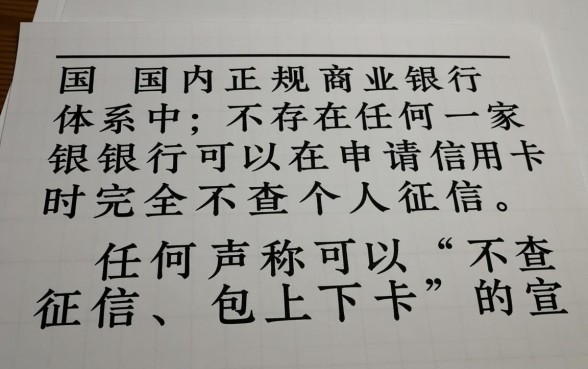 国 国内正规商业银行
体系中；不存在任何一家
银银行可以在申请信用卡
时完全不查个人征信。
任何声称可以“不查
征信、包上下卡”的宣